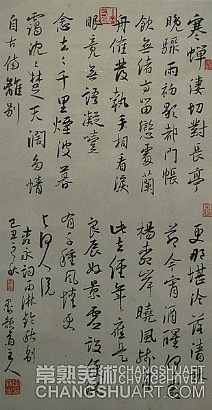 寒蟬淒切對長亭
晚驟雨初歇都門帳
飲無緒方留戀處蘭
舟催發執手相看淚
眼竟無語凝噎
念去去千里煙波暮
靄沉沉楚天闊多情
自古傷離別
更那堪冷落清秋
節今宵酒醒何處
楊柳岸曉風殘月
此去經年應是
良辰好景虛設便縱
有千種風情更
與何人說
永詞雨淋鈴秋別
己丑 主人
常熟美术 CHANGSHUART
CHANGSHUART.COM